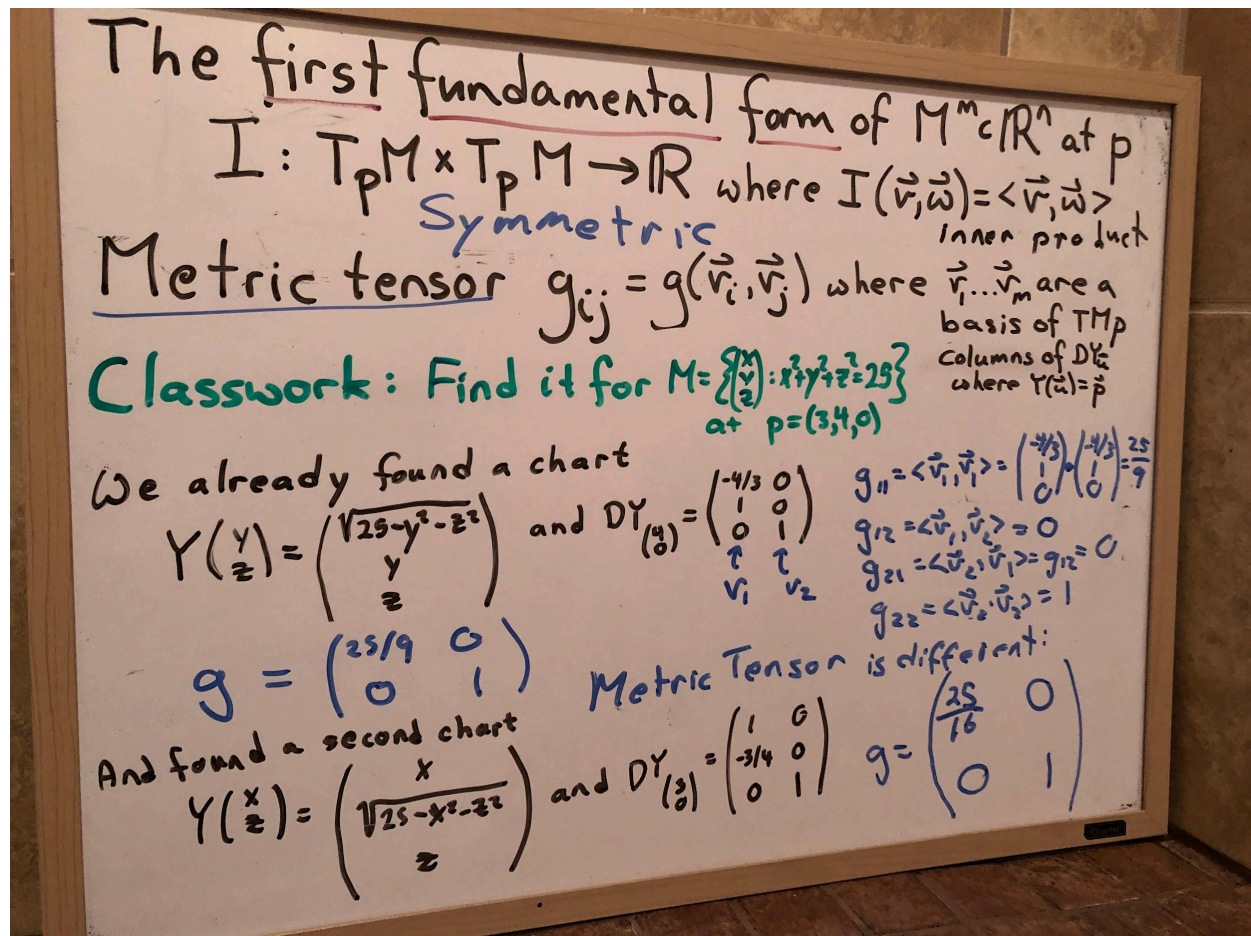 The first fundamental form of Mᵐ⊂ℝⁿ at p
I: TₚM × TₚM → ℝ where I(v⃗,w⃗)=<v⃗,w⃗>
Symmetric
inner product
Metric tensor gᵢⱼ = g(v⃗ᵢ,v⃗ⱼ) where v⃗₁...v⃗ₘ are a
basis of TMp
columns of DYᵤ⃗
where Y(u⃗)=p⃗
Classwork: Find it for M={(x y z): x²+y²+z²=25}
at p=(3,4,0)
We already found a chart
Y(y z) = (√25-y²-z² y z) and DY(4 0) = (-4/3 0 1 0 0 1)
↑ ↑
v₁ v₂
g₁₁=<v⃗₁,v⃗₁>=(-4/3 1 0)•(-4/3 1 0)=25/9
g₁₂=<v⃗₁,v⃗₂>=0
g₂₁=<v⃗₂,v⃗₁>=g₁₂=0
g₂₂=<v⃗₂·v⃗₂>=1
g = (25/9 0 0 1)
Metric Tensor is different:
And found a second chart
Y(x z) = (x √25-x²-z² z) and DY(3 0) = (1 0 -3/4 0 0 1)
g=(25/16 0 0 1)